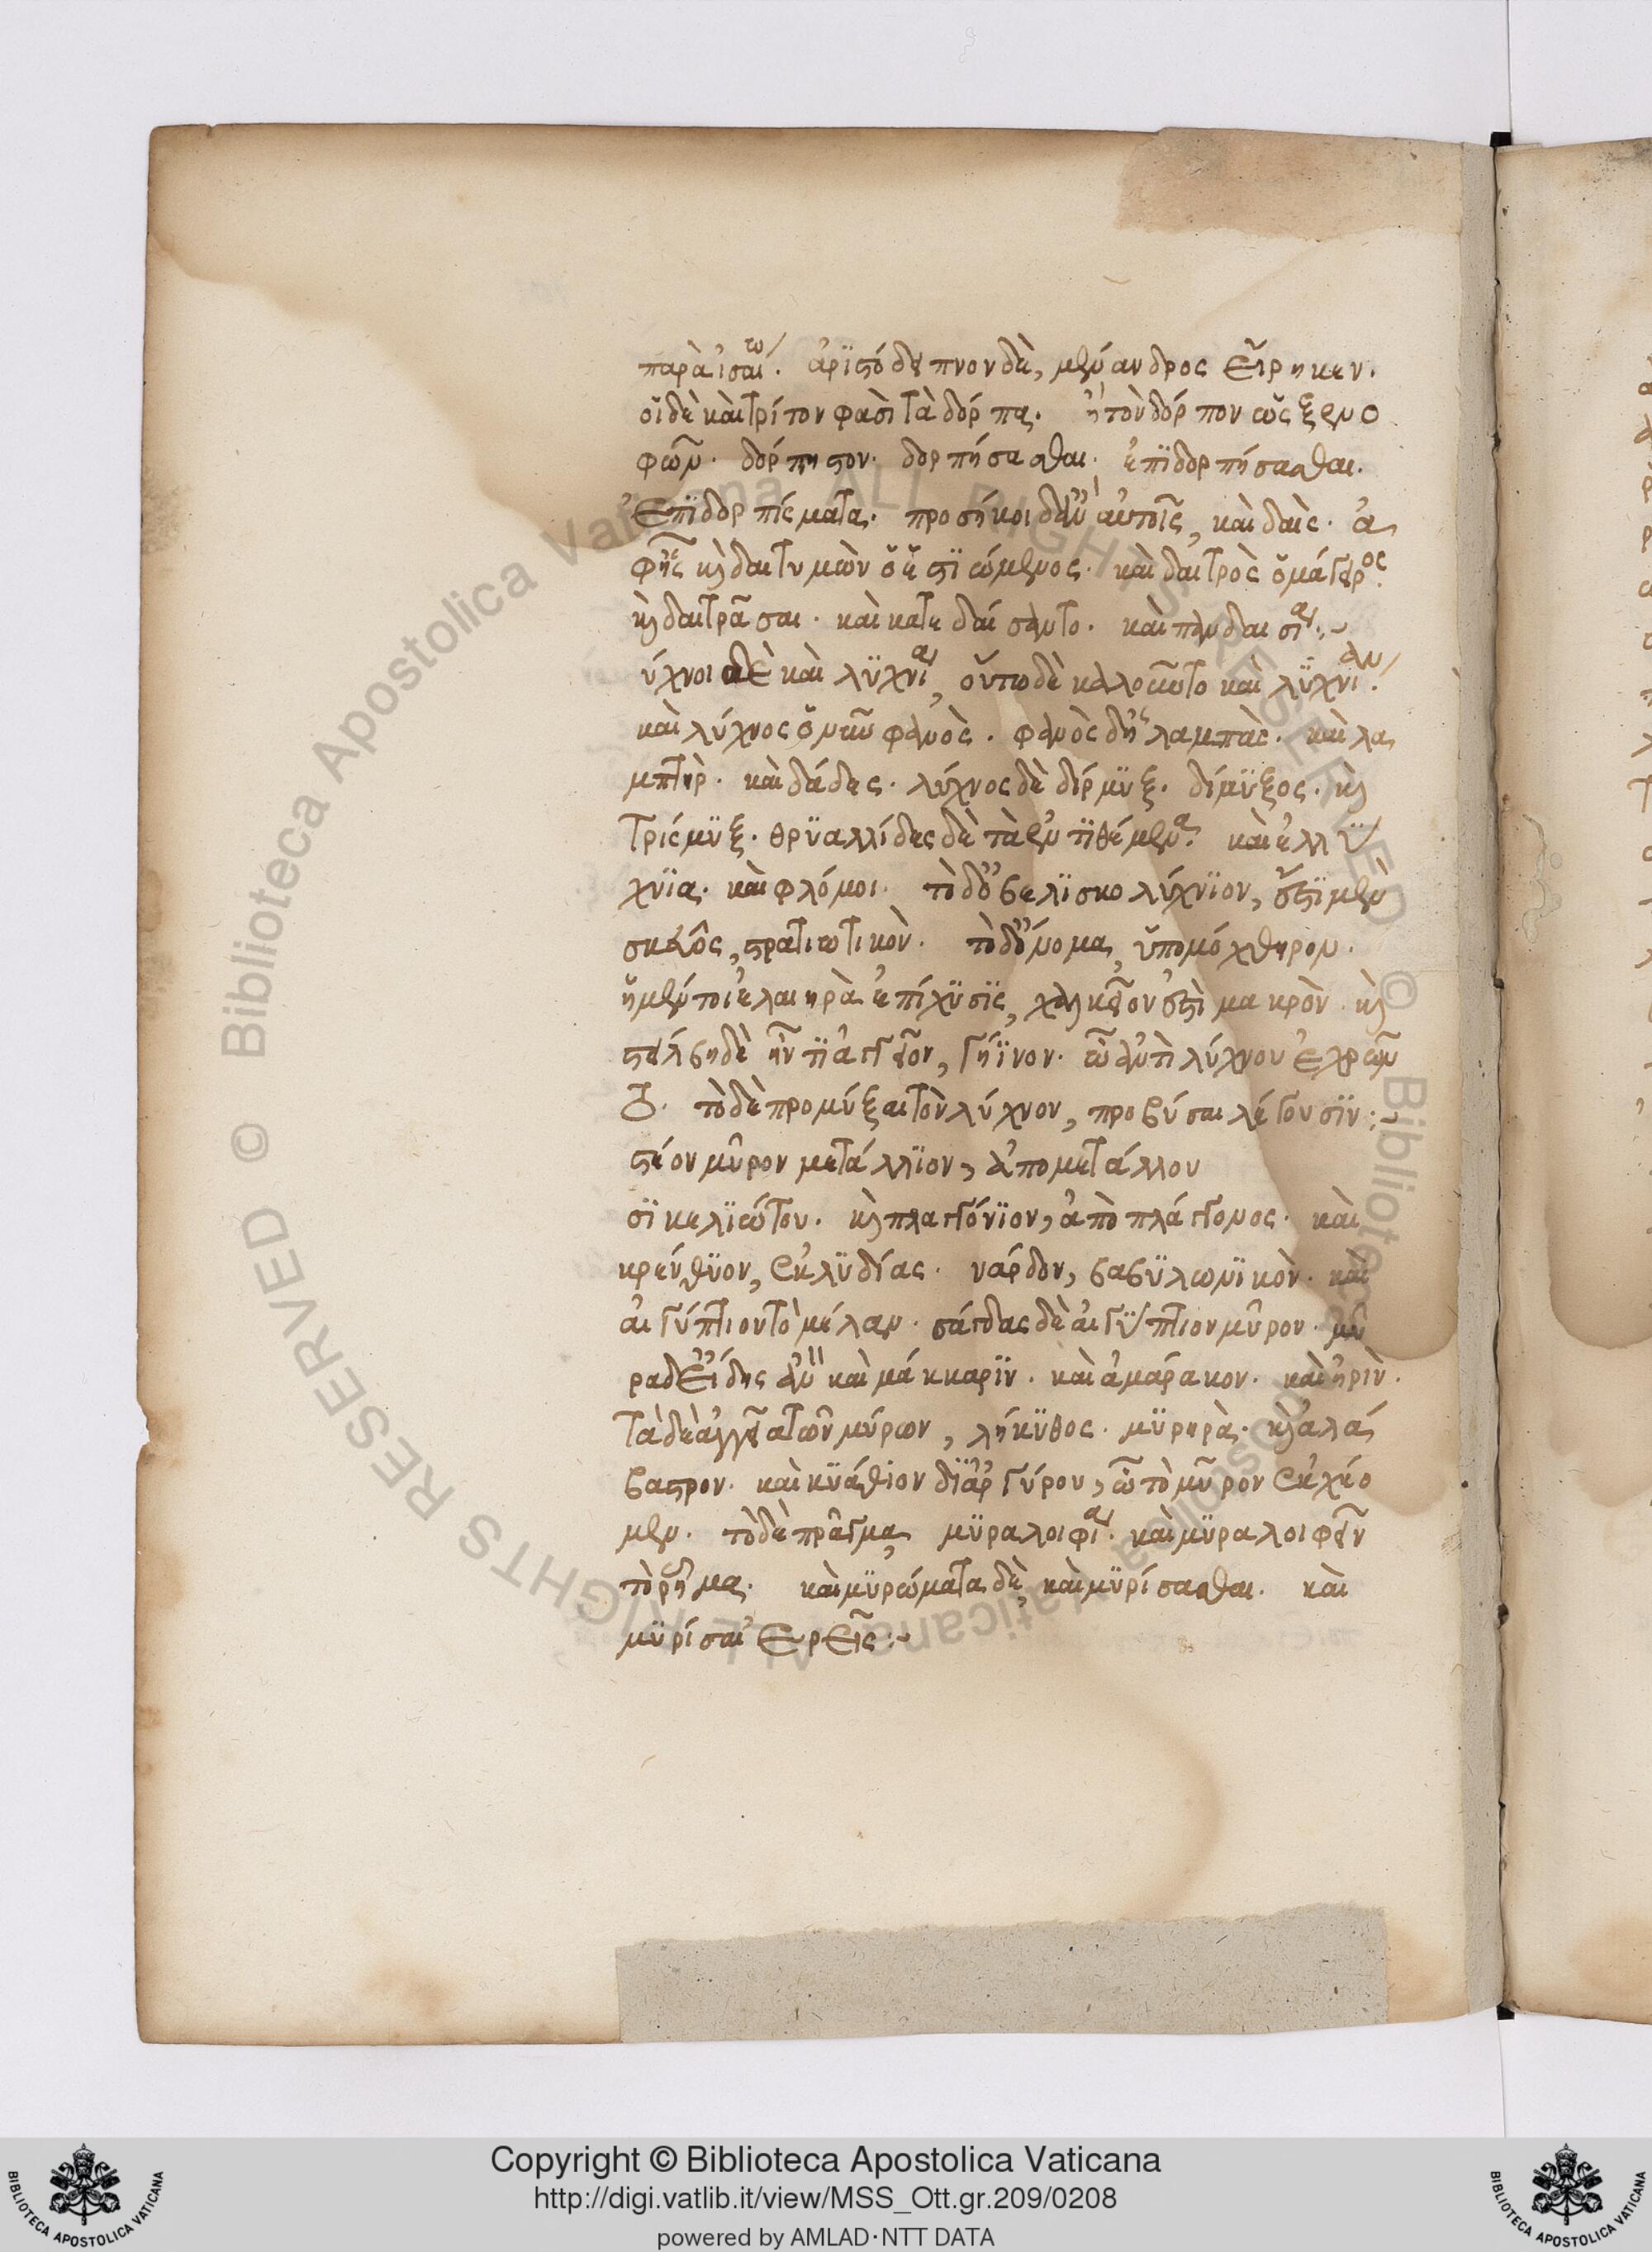 παρὰ ἰσαίω. ἀρϊστόδειπνον δὲ, μένανδρος εἴρηκεν.
οἱ δὲ καὶ τρίτον φασὶ τὰ δόρπα. ἢ τὸν δόρπον ὡς ξενο
φῶν. δόρπηστον. δορπήσασθαι. ἐπϊδορπήσασθαι.
ἐπϊδορπίσματα. προσήκοι δ' ἂν αὐτοῖς, καὶ δαὶς. ἀ
φ' ἧς καὶ δαιτυμὼν ὁ ἑστϊώμενος. καὶ δαιτρὸς ὁ μάγειρος.
καὶ δαιτρᾶσαι. καὶ κατεδαίσαντο. καὶ πανδαισία:~
ύχνοι δὲ καὶ λϋχνία, οὕτω δὲ καλοῖντο καὶ λϋχνίαν.
καὶ λύχνος ὁ μὲν φανὸς. φανὸς δ' ἡ λαμπὰς. καὶ λα
μπτὴρ. καὶ δάδες. λύχνος δὲ δίμϋξ. δίμϋξος. καὶ
τρίσμϋξ. θρϋαλλίδες δὲ τὰ ἐντϊθέμενα. καὶ ἐλλϋ
χνϊα. καὶ φλόμοι. τὸ δ' ὀβελϊσκολύχνϊον, ἔστϊ μὲν
σκεῦος, στρατιωτικὸν. τὸ δ' ὄνομα, ὑπομόχθηρον.
ἡ μέν τοι ἐλαιηρὰ ἐπίχϋσϊς, χαλκεῖον ἐστὶ μακρὸν. καὶ
στίλβη δὲ ἦν τϊ ἀγγεῖον, γήϊνον. ᾧ ἀντὶ λύχνου ἐχρῶν
το. τὸ δὲ προμύξαι τὸν λύχνον, προβύσαι λέγουσϊν:~
στέον μῦρον μετάλλϊον, ἀπὸ μετάλλου
σϊκελϊώτου. καὶ πλαγγόνϊον, ἀπὸ πλάγγονος. καὶ
κρένθϋον, ἐκ λϋδίας. νάρδον, βαβϋλωνϊκὸν. καὶ
αἰγύπτιον τὸ μέλαν. σάγδας δὲ αἰγϋπτιον μῦρον. μῦ
ρα δ' εἴδης ἂν καὶ μάκκαρϊν. καὶ ἀμάρακον. καὶ ἠρὶν.
τὰ δὲ ἀγγεῖα τῶν μύρων, λήκϋθος. μϋρηρὰ. καὶ ἀλά
βαστρον. καὶ κϋάθιον δϊάργύρου, ᾧ τὸ μῦρον ἐκχέο
μεν. τὸ δὲ πρᾶγμα, μϋραλοιφία. καὶ μϋραλοιφεῖν
τὸ ῥῆμα. καὶ μϋρώματα δὲ, καὶ μϋρίσασθαι. καὶ
μϋρίσαι ἐρεῖς:~
Copyright © Biblioteca Apostolica Vaticana
http://digi.vatlib.it/view/MSS_Ott.gr.209/0208
powered by AMLAD·NTT DATA
BIBLIOTECA APOSTOLICA VATICANA
BIBLIOTECA APOSTOLICA VATICANA
© Biblioteca Apostolica Vaticana ALL RIGHTS RESERVED © Biblioteca Apostolica Vaticana ALL RIGHTS RESERVED